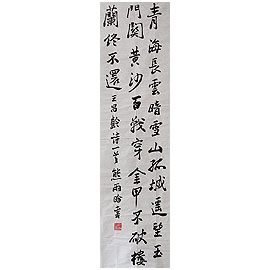 青海長雲暗雪山孤城遥望玉
門関黄沙百戰穿金甲不破樓
蘭终不還 王昌齡詩一首 熊雨